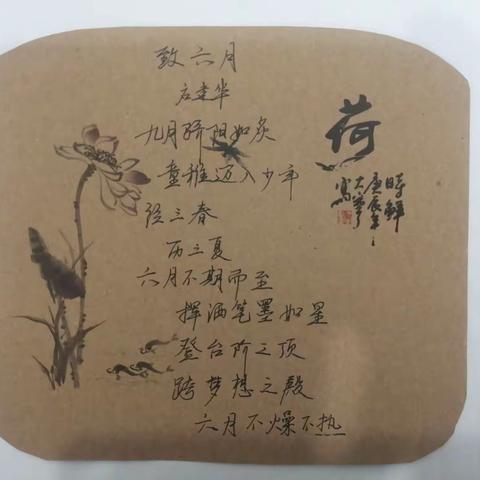 致六月
左建华
九月骄阳如炙
童稚迈入少年
经三春
历三夏
六月不期而至
挥洒笔墨如星
登台阶之顶
跨梦想之殿
六月不燥不热
荷
时鲜
庚辰年